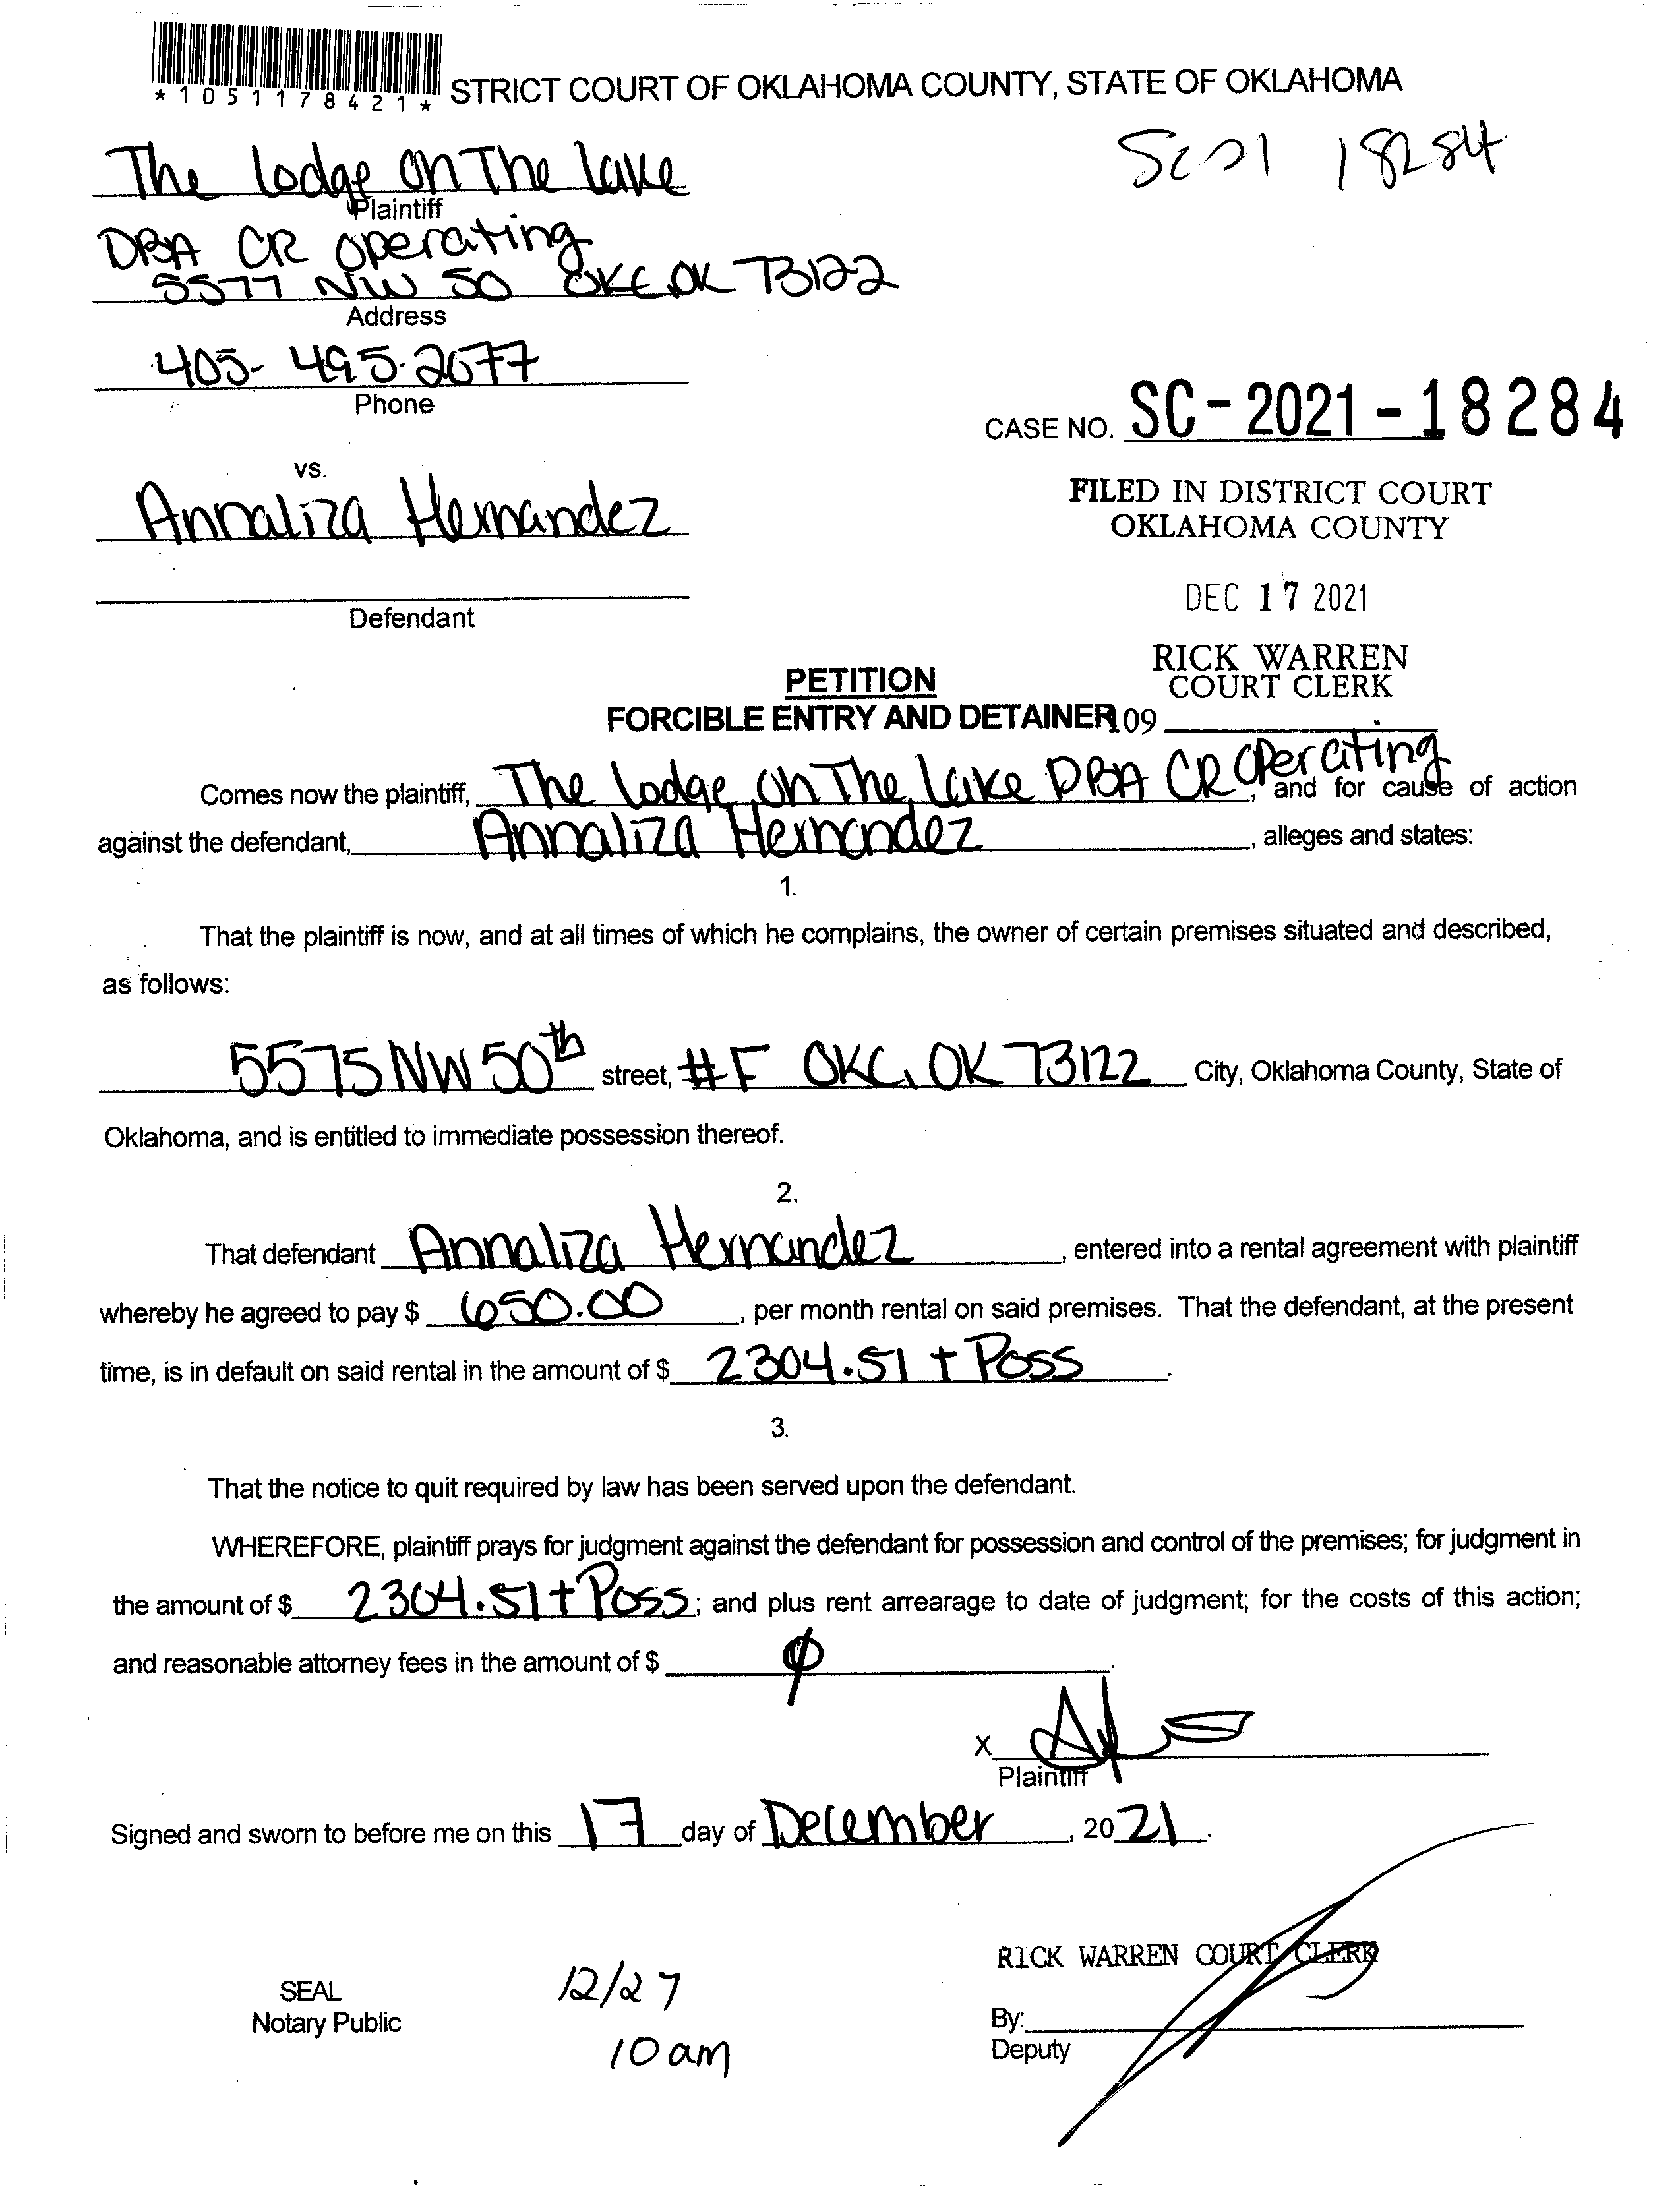 *1051178421* STRICT COURT OF OKLAHOMA COUNTY, STATE OF OKLAHOMA
The lodge On The lake
SC21 18284
Plaintiff
DBA CR operating
5577 NW 50 OKC OK 73122
Address
405-495-2677
Phone
CASE NO. SC-2021-18284
vs.
Annaliza Hernandez
FILED IN DISTRICT COURT
OKLAHOMA COUNTY
DEC 17 2021
Defendant
RICK WARREN
COURT CLERK
PETITION
FORCIBLE ENTRY AND DETAINER 109
Comes now the plaintiff, The lodge on The lake DBA CR Operating, and for cause of action
against the defendant, Annaliza Hernandez, alleges and states:
1.
That the plaintiff is now, and at all times of which he complains, the owner of certain premises situated and described,
as follows:
5575 NW 50th street, #F OKC, OK 73122 City, Oklahoma County, State of
Oklahoma, and is entitled to immediate possession thereof.
2.
That defendant Annaliza Hernandez, entered into a rental agreement with plaintiff
whereby he agreed to pay $ 650.00, per month rental on said premises. That the defendant, at the present
time, is in default on said rental in the amount of $ 2304.51 + Poss.
3.
That the notice to quit required by law has been served upon the defendant.
WHEREFORE, plaintiff prays for judgment against the defendant for possession and control of the premises; for judgment in
the amount of $ 2304.51 + Poss; and plus rent arrearage to date of judgment; for the costs of this action;
and reasonable attorney fees in the amount of $ φ.
X
Plaintiff
Signed and sworn to before me on this 17 day of December, 2021.
RICK WARREN COURT CLERK
SEAL
Notary Public
12/27
10am
By:
Deputy